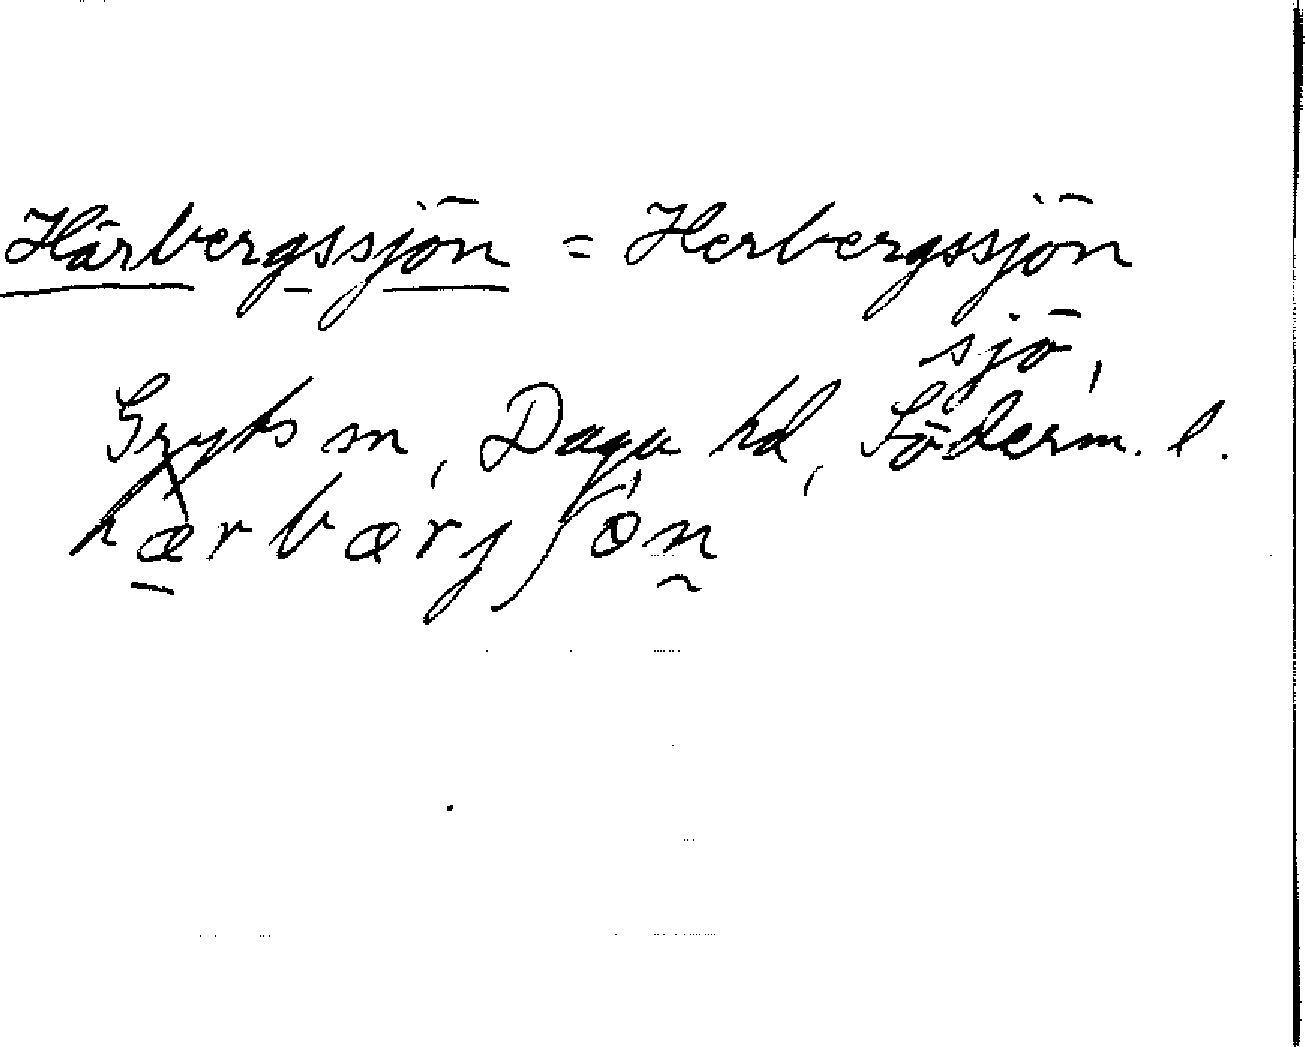 Härbergssjön = Herbergssjön
sjö,
Gryts sn, Daga hd, Söderm. l.
hærbærjʃön